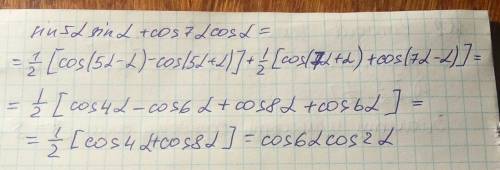 sin5α sinα + cos7α cosα =
= 1/2 [cos(5α-α)-cos(5α+α)] + 1/2 [cos(7α+α)+cos(7α-α)] =
= 1/2 [cos4α - cos6α + cos8α + cos6α] =
= 1/2 [cos4α + cos8α] = cos6α cos2α